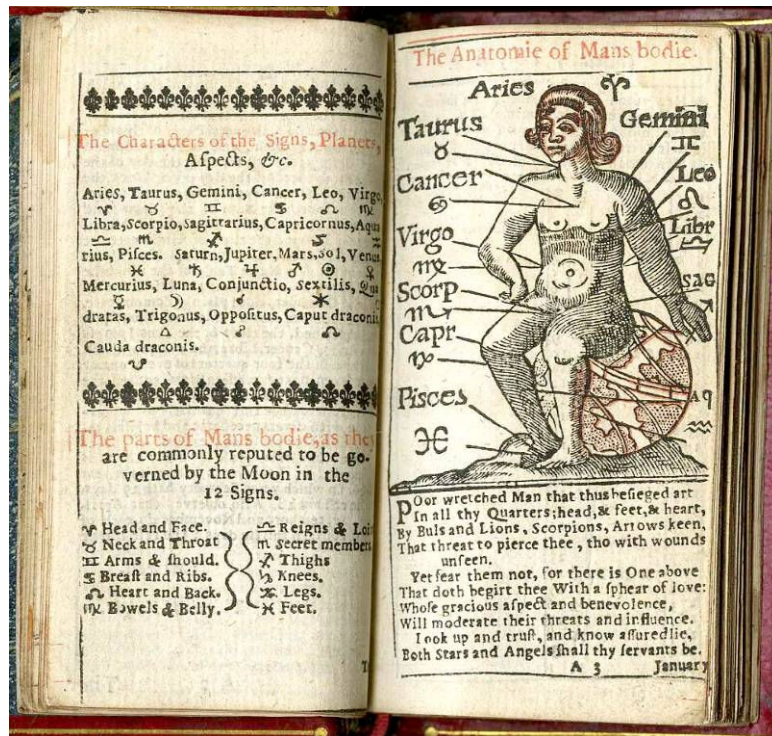 The Characters of the Signs, Planets,
Aſpects, &c.
Aries, Taurus, Gemini, Cancer, Leo, Virgo,
♈ ♉ ♊ ♋ ♌ ♍
Libra, Scorpio, Sagittarius, Capricornus, Aqua
♎ ♏ ♐ ♑ ♒
rius, Piſces. Saturn, Jupiter, Mars, Sol, Venus
♓ ♄ ♃ ♂ ☉ ♀
Mercurius, Luna, Conjunctio, Sextilis, Qua
☿ ☽ ☌ ⚹ □
dratas, Trigonus, Oppoſitus, Caput draconis
△ ☍ ☊
Cauda draconis.
☋
The parts of Mans bodie, as they
are commonly reputed to be go-
verned by the Moon in the
12 Signs.
♈ Head and Face.
♉ Neck and Throat
♊ Arms & ſhould.
♋ Breaſt and Ribs.
♌ Heart and Back.
♍ Bowels & Belly.
♎ Reigns & Loi
♏ Secret members
♐ Thighs
♑ Knees.
♒ Legs.
♓ Feet.
The Anatomie of Mans bodie.
Aries ♈
Taurus
♉
Gemini
♊
Cancer
♋
Leo
♌
Virgo
♍
Libr
♎
Scorp
♏
SAG
♐
Capr
♑
Piſces
♓
Aq
♒
POor wretched Man that thus beſieged art
In all thy Quarters; head, & feet, & heart,
By Buls and Lions, Scorpions, Arrows keen,
That threat to pierce thee, tho with wounds
unſeen.
Yet fear them not, for there is One above
That doth begirt thee With a ſphear of love:
Whoſe gracious aſpect and benevolence,
Will moderate their threats and influence.
Look up and truſt, and know aſſuredlie,
Both Stars and Angels ſhall thy ſervants be.
A 3 January